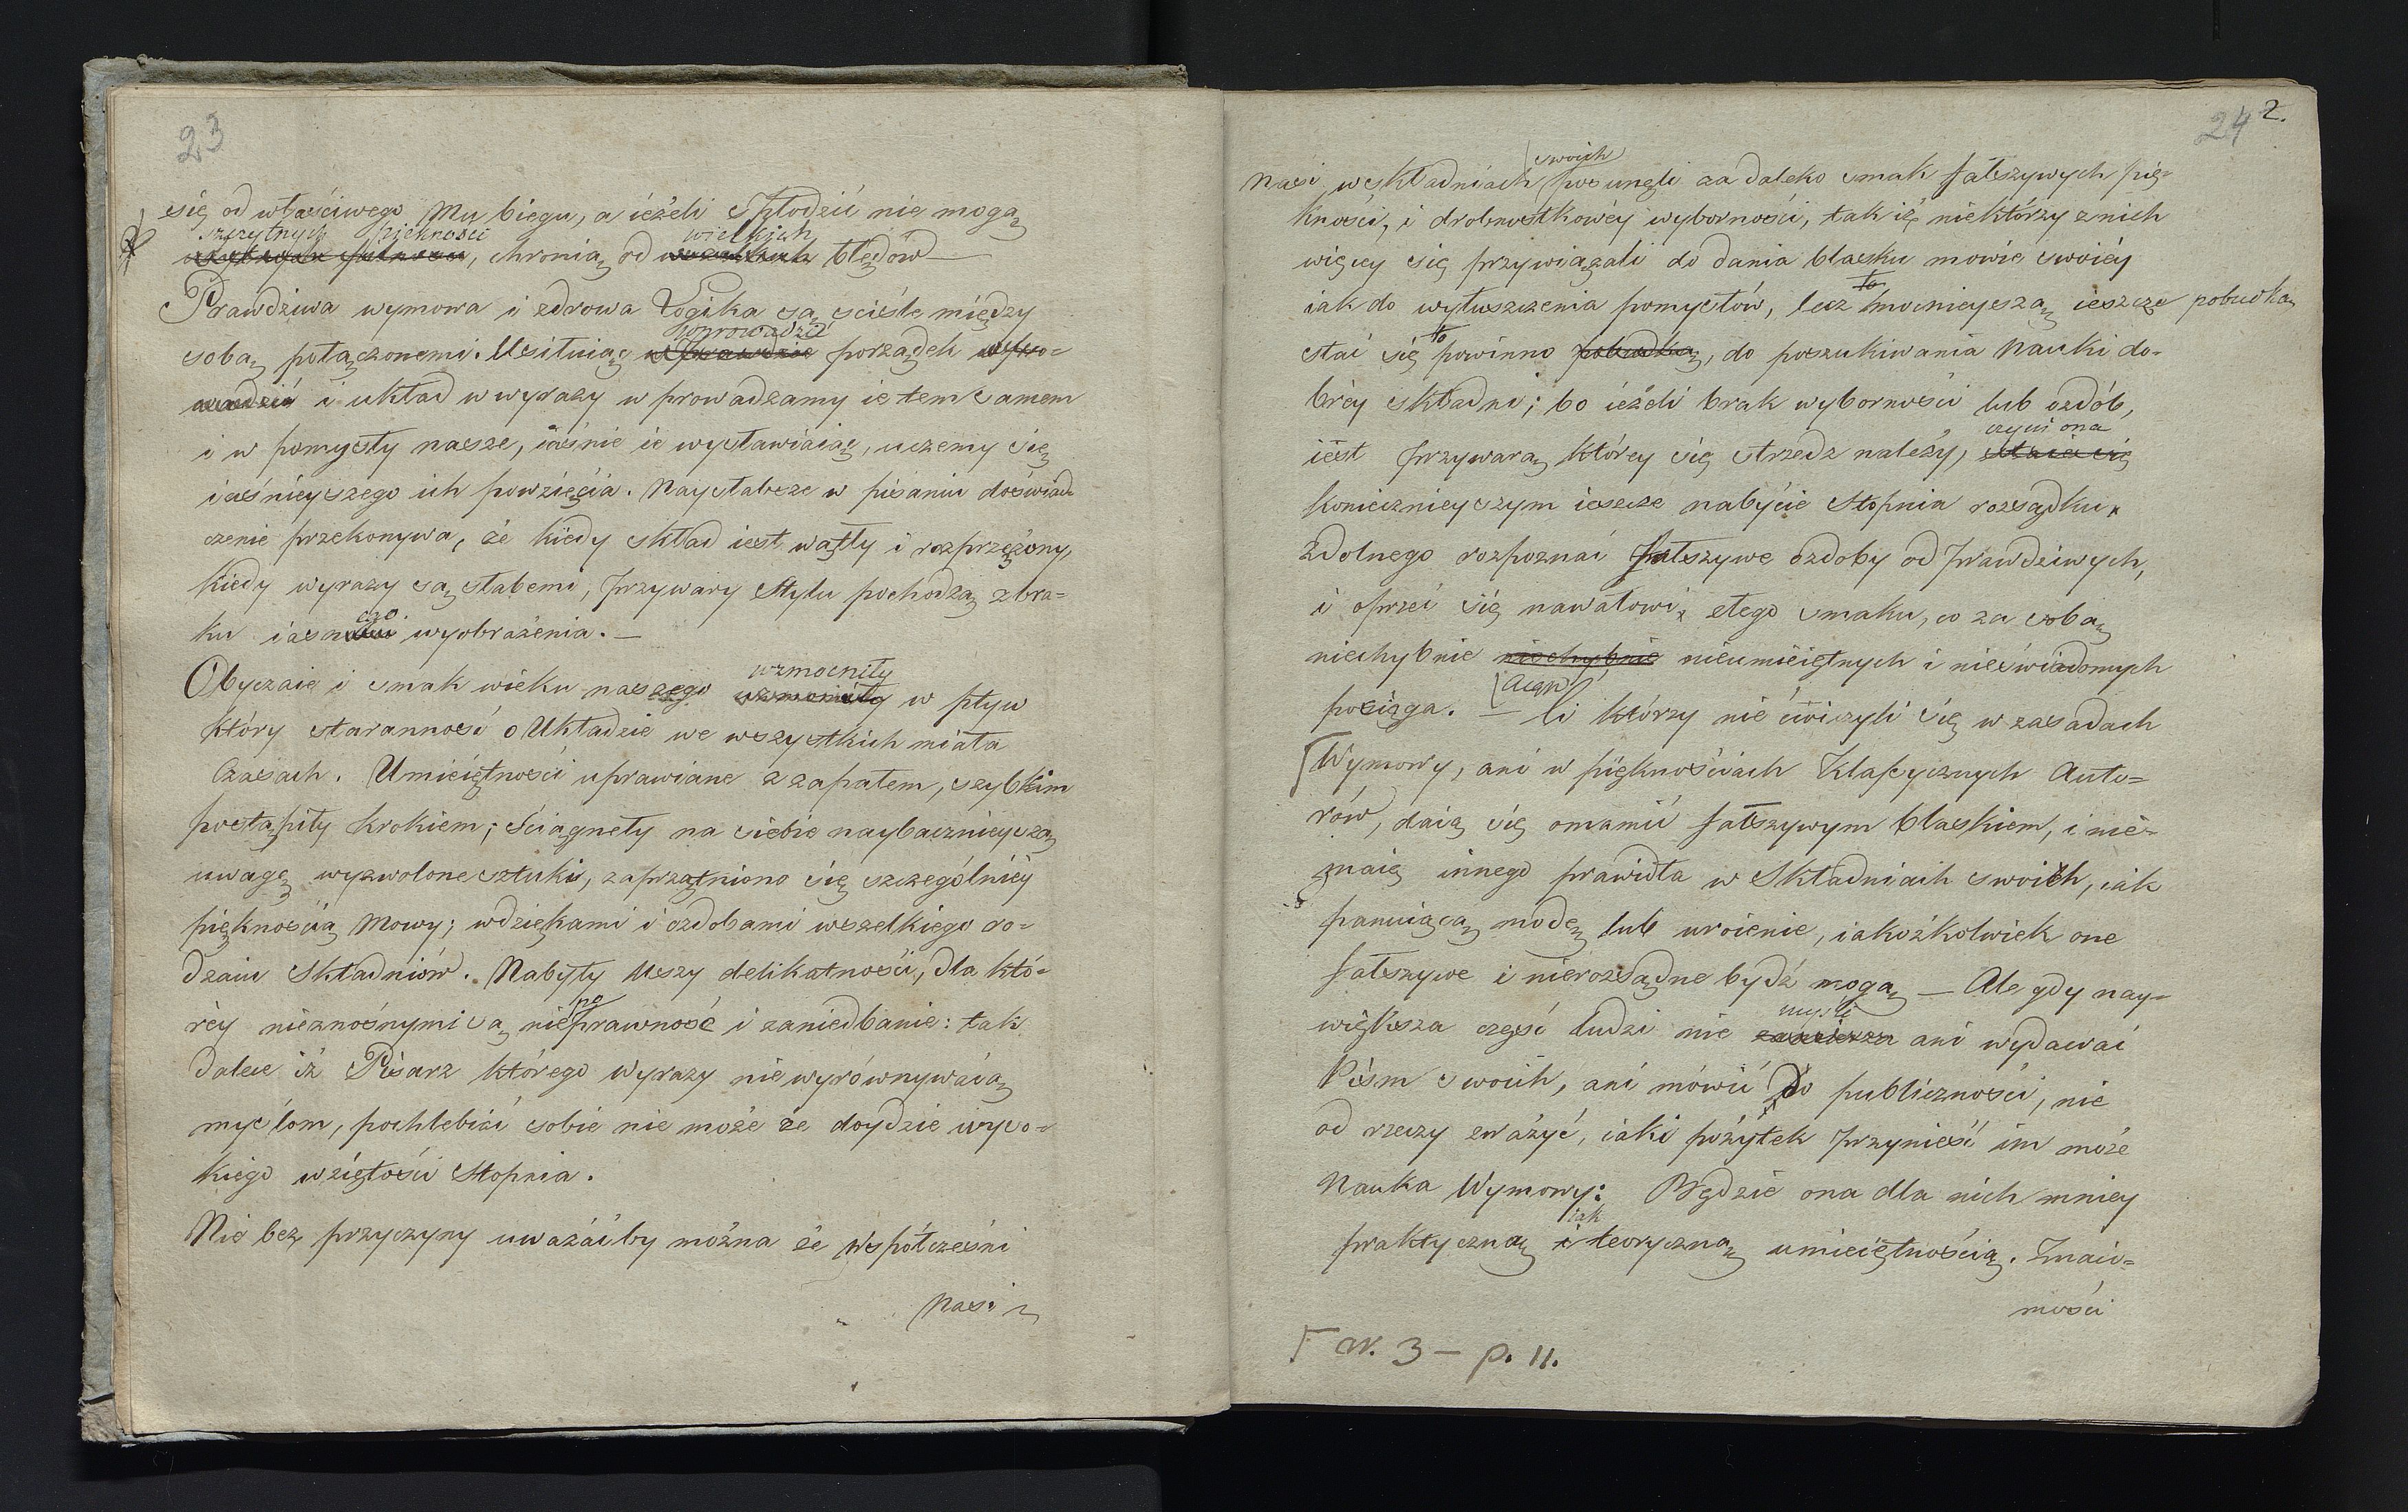 23
się od właściwego Mu biegu, a ieżeli spłodzić nie mogą
szczytnych piękności wielkich
, chronią od błędów
Prawdziwa wymowa i zdrowa Logika są scisle między
wprowadzić
sobą połączonemi. Usiłuiąc porządek wpro-
wadzić i układ w wyrazy wprowadzamy ie tem samem
i w pomysły nasze, iaśnie ie wystawiaiąc, uczemy się
iaśnieyszego ich powzięcia. Naysłabsze w pisaniu doświad
czenie przekonywa, że kiedy skład iest wątły i rozprzężony,
kiedy wyrazy są słabemi, przywary Stylu pochodzą z bra-
ego
ku iasn wyobrażenia. —
wzmocniły
Obyczaie i smak wieku naszego wzmocniły w pływ
który staranność o Układzie we wszystkich miała
Czasach. Umieiętności uprawiane z zapałem, szybkim
postąpiły krokiem; Ściągneły na siebie naybacznieyszą
uwagę wyzwolone sztuki, zaprzątniono się szczególniey
pięknością Mowy; wdziękami i ozdobami wszelkiego ro-
dzaiu Składniów. Nabyły Uszy delikatności, dla któ-
po
réy nieznośnymi są nieprawność i zaniedbanie: tak
dalece iż Pisarz którego Wyrazy nie wyrównywaią
myślom, pochlebiać sobie nie może że doydzie wyso-
kiego wziętości Stopnia.
Nie bez przyczyny uważać by można że Współcześni
nasi
24 2.
swoich
Nasi w składniach posunęli za daleko smak fałszywych pię-
kności, i drobnostkowéy wyborności, tak iż niektórzy z nich
więcey się przywiązali do dania blasku mowie swoiéy
to
iak do wyłuszczenia pomysłów, lecz mocnieyszą ieszcze pobudką
to
stać się powinno pobudką, do poszukiwania Nauki do-
bréy składni; bo ieżeli brak wyborności lub ozdób,
czyni ona
iest przywarą któréy się strzedz należy, staie się
koniecznieyszym iescze nabycie Stopnia rozsądku,
zdolnego rozpoznać fałszywe ozdoby od prawdziwych,
i oprzeć się nawałowi złego smaku, co za sobą
niechybnie niechybnie nieumieiętnych i nieświadomych
pociąga. — Ci którzy nie ćwiczyli się w zasadach
Wymowy, ani w pięknościach Klassycznych Auto-
rów, daią się omamić fałszywym blaskiem, i nie-
znaią innego prawidła w Składniach swoich, iak
panuiącą modę lub uroienie, iakożkolwiek one
fałszywe i nierozsądne bydź mogą — Ale gdy nay-
myśli
większa część ludzi nie zamierza ani wydawać
Pism swoich, ani mówić do publiczności, nie
od rzeczy zważyć, iaki pożytek przynieść im może
Nauka Wymowy: Będzie ona dla nich mniey
iak
praktyczną i teoryczną umieiętnością. Znaio-
mości
W. 3 — p. 11.